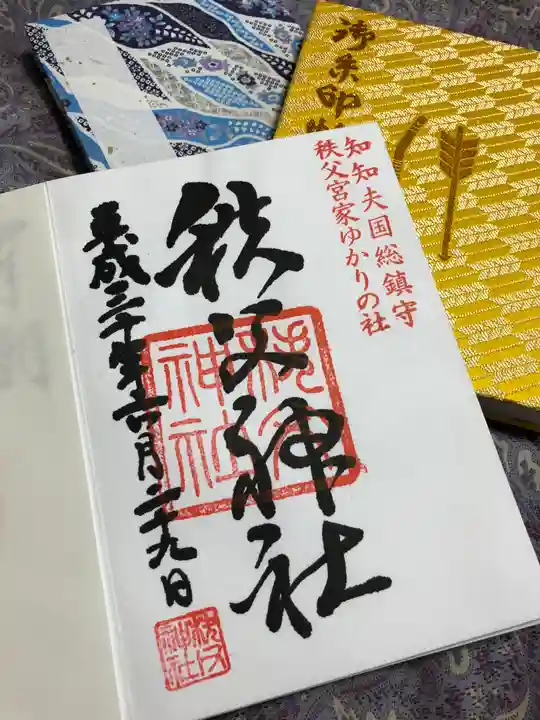 御朱印
知知夫国総鎮守
秩父宮家ゆかりの社
秩父神社
秩父神社
平成三十年六月二十九日
秩父神社